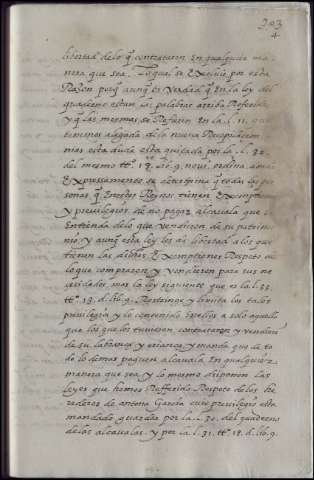 203
4
libertad de lo q̃ contrataren En qualquier ma
nera que sea. Lo qual se Excluie por esta
Razon porq̃ aunq̃ es Verdad q̃ En la ley del
quaderno estan las palabras arriba Referidas
y q̃ las mesmas se Refieren En la l. 11. que
tenemos alegada de la nueva Recopilacion
mas esta duda esta quitada por la l. 32.
del mesmo tt.º 18. lib. 9.
Expressamente se determina q̃ todas las per
sonas q̃ En estos Reynos tienen Exemptio
y previlegios de no pagar alcavala que se
Entienda de lo que vendieren de su patrimo
nio, y aunq̃ esta ley les da libertad a los que
tienen las dichas Exemptiones Respeto de
lo que compraren y vendieren para sus ne
cesidades mas la ley siguiente que es la l. 33.
tt.º 18. d. lib. 9. Restringe y limita los tales
privilegios y lo contenido En ellos a solo aquello
que los que los tuvieren contrataren y vendieren
de su labrança y criança, y manda que de to
do lo demas paguen alcavala En qualquier
manera que sea, y lo mesmo disponen las
leyes que hemos Rufferido Respeto de los he
rederos de antona Garcia cuio privilegio esta
mandado guardar por la l. 30. del quaderno
de las alcavalas. y por la l. 31. tt.º 18. d. lib. 9.